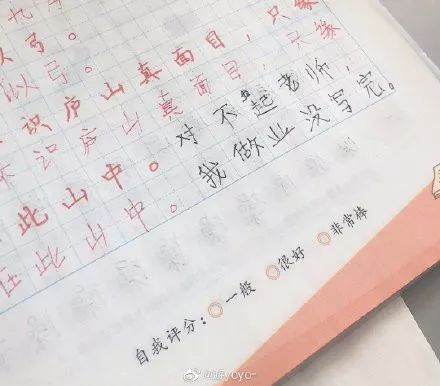 弓。
似弓。
识庐山真面目，只缘
不识庐山真面目，只缘
此山中。对不起老师，
在此山中。我做业没写完。
自我评分：◎一般 ◎很好 ◎非常棒